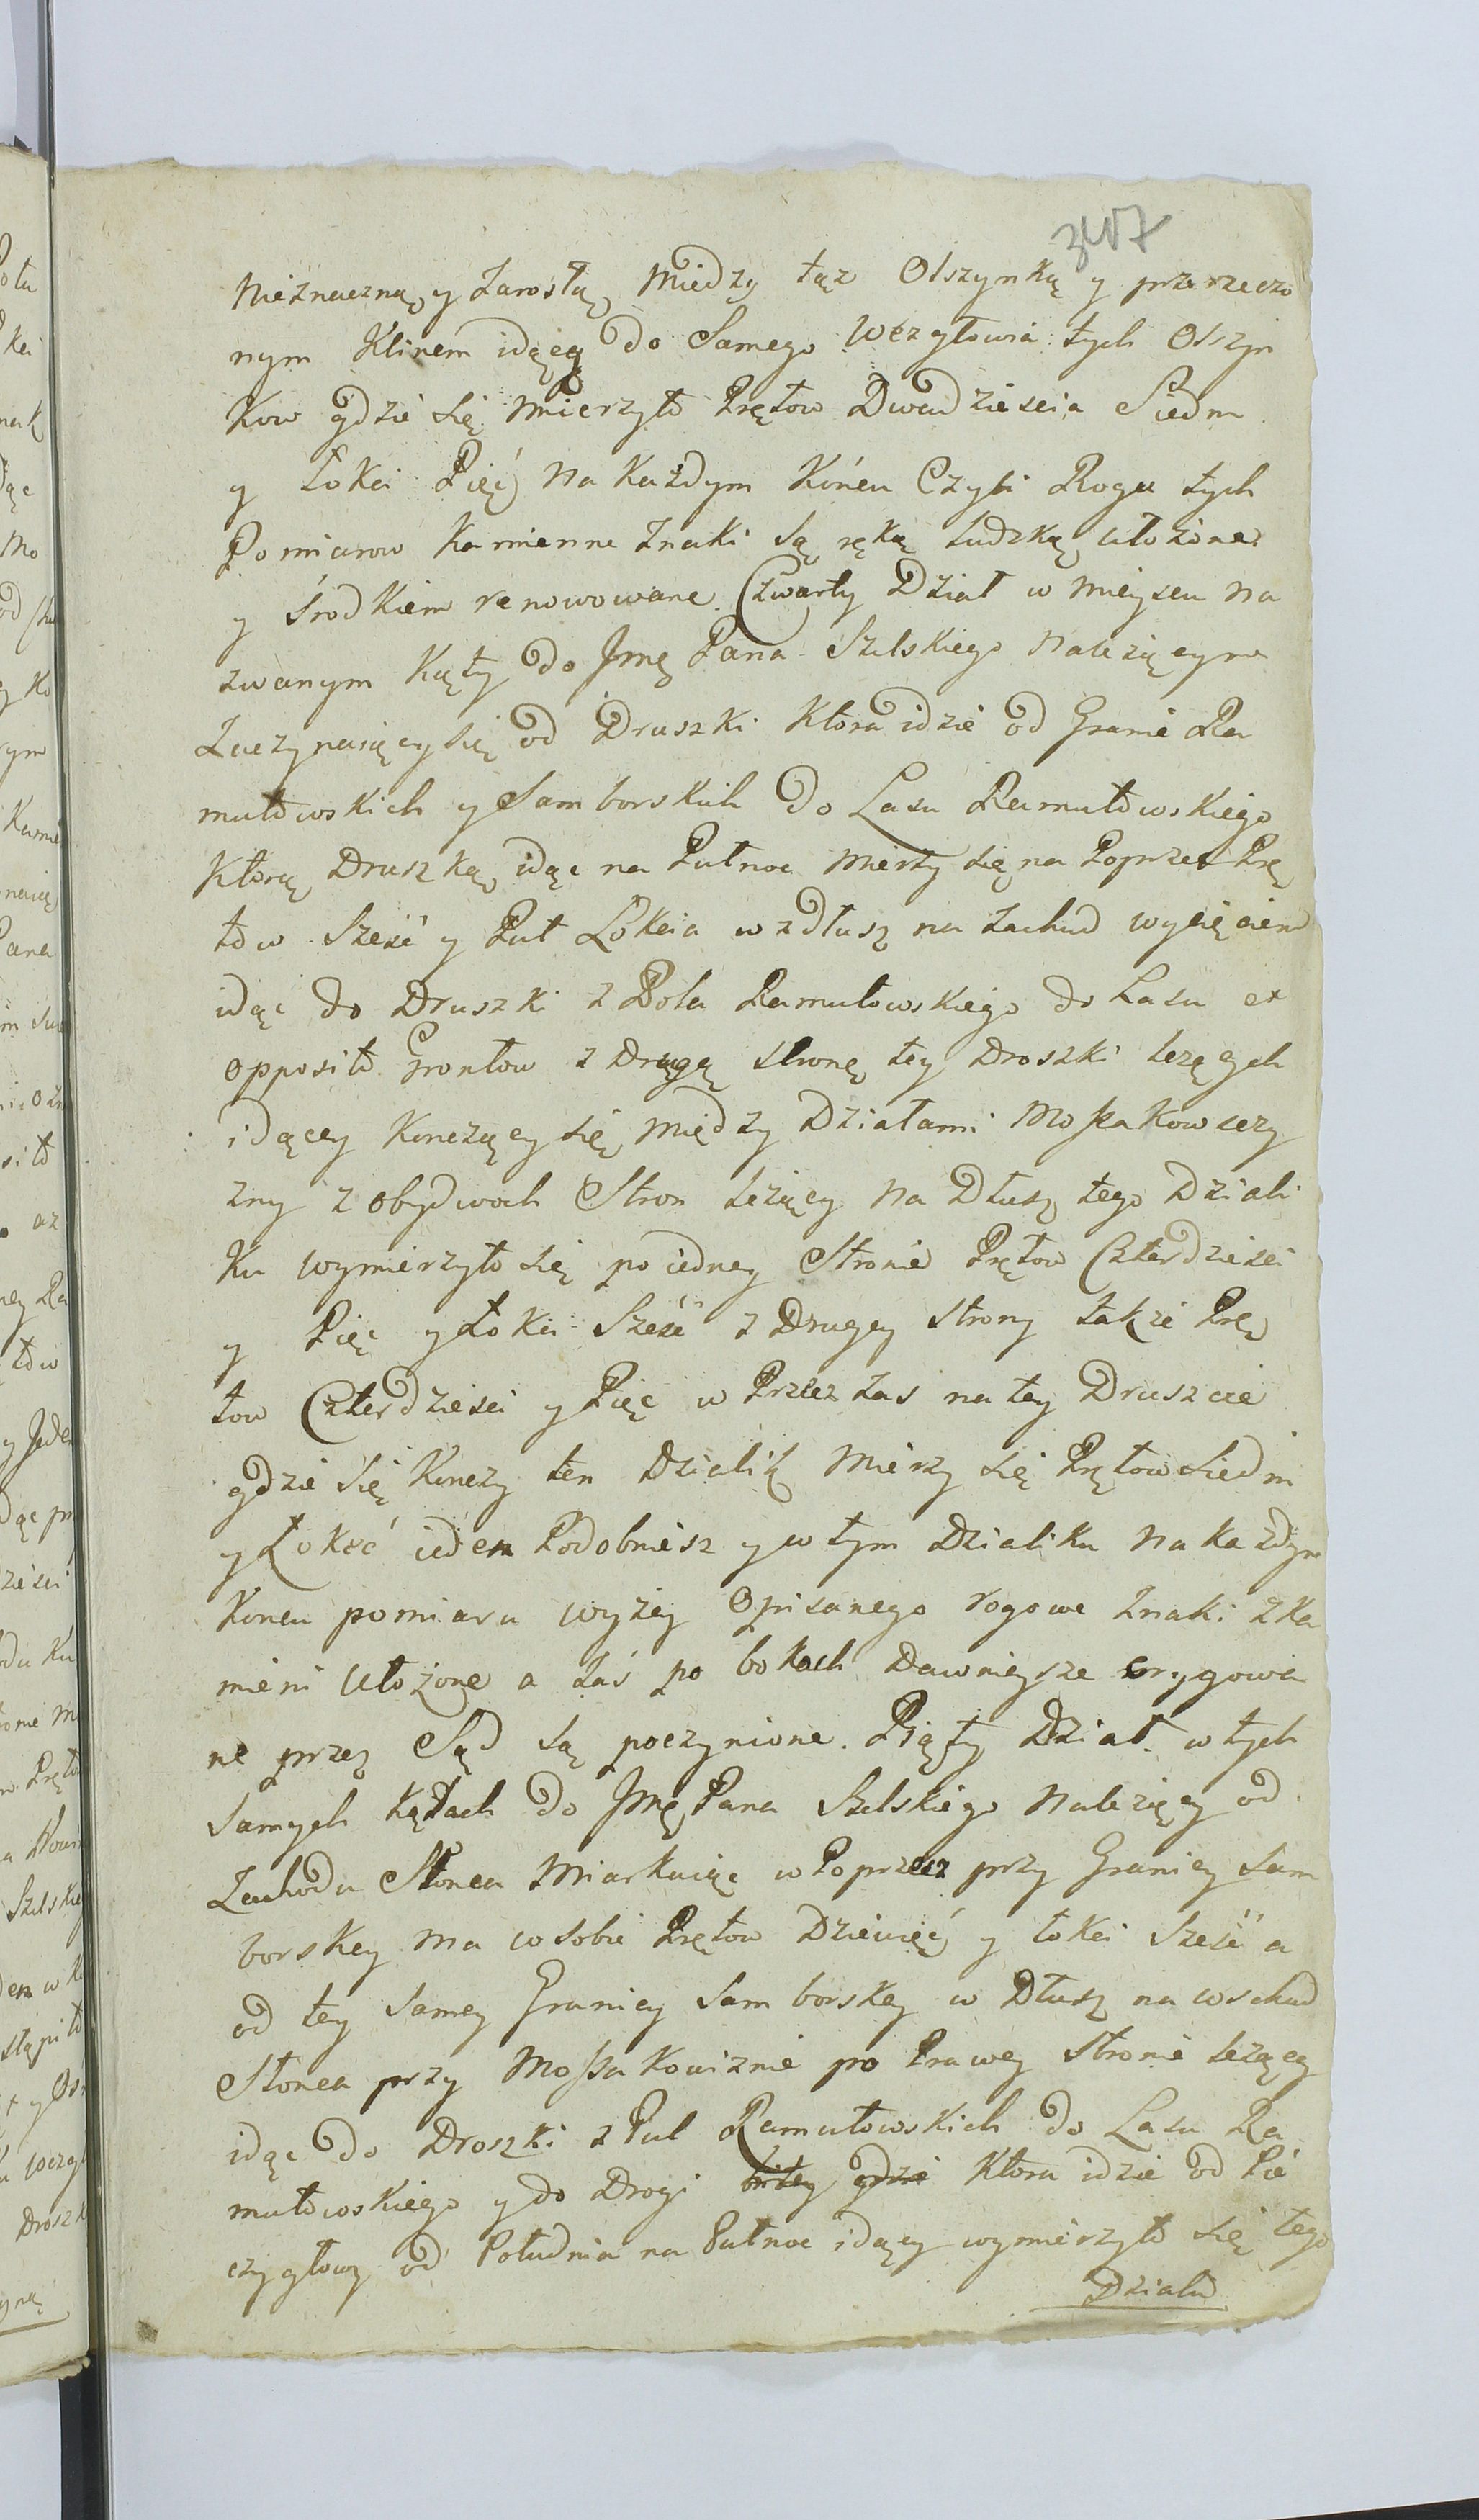 nieznaczną y zarosłą między tąz Olszynką y przerzeczo
nym Klinem idącą do Samego Wezgłowia tych Olszyn
kow gdzie się mierzyło Prętow Dwadziescia Siedm
y Łokci Pięć na każdym Końcu Czyli Rogu tych
Pomiarow kamienne znaki są ręką ludzką ułożone
y środkiem renowowane. Czwarty Dział w mieyscu na
zwanym Kąty do Jmę Pana Szelskiego należącym
Zaczynaiący się od Druszki Ktora idzie od Granic Ra
mułtowskich y Samborskich do Lasu Ramułtowskiego
Ktorą Druszką idąc na Pułnoc mierzy się na Poprzez Prę
tow Sześć y Puł Łokcia w zdłusz na zachud wycięciem
idąc do Druszki z Pola Ramułowskiego do Lasu ex
opposito Grontow z Drugą stronę tey Droszki leżących
idącey kończący się między Działami Mossakowszczy
zny z obydwoch Stron leżący na Dłusz tego Działi
ku wymierzyło się po iedney Stronie Prętow Czterdziesci
y Pięc y Łokci Sześć z Drugey strony także Prę
tow Czterdziesci y Pięc w Przez zas na tey Druszcie
gdzie się kończy ten Działik mierzy się Prętow siedm
y Łokeć ieden Podobniesz y w tym Działiku na każdym
końcu pomiaru wyżey Opisanego rogowe znaki z ka
mieni Ułożone a zaś po bokach Dawnieysze erygowa
ne przez Sąd są poczynione. Piąty Dział w tych
samych kątach do Jmę Pana Szelskiego należący od
Zachodu Słonca miarkuiąc w Poprzecz przy Granicy Sam
borskey ma w sobie Prętow Dziewięć y łokci Sześć a
od tey samey Granicy Samborskey w Dłusz na wschud
Słonca przy Mossakowiznie po Prawey stronie leżącey
idąc do Droszki z Pul Ramułowskich do Lasu Ra
mułtowskiego y do Drogi Ktora idzie od Pie
czygłowy od Południa na Pułnoc idący wymierzyło się tego
Działu